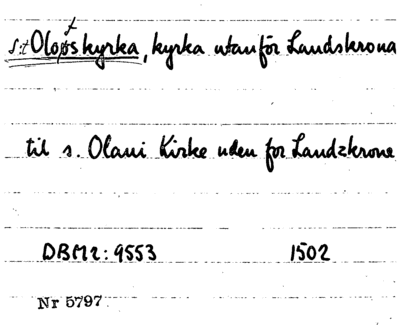 S:t Olofskyrka, kyrka utanför Landskrona
til s. Olaui Kirke uden for Landzkrone
DBM2: 9553 1502
Nr 5797